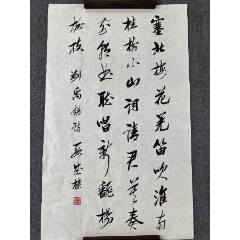 塞北梅花羌笛吹淮南
桂樹小山詞請君莫奏
前朝曲聽唱新翻楊
柳枝 劉禹錫詩